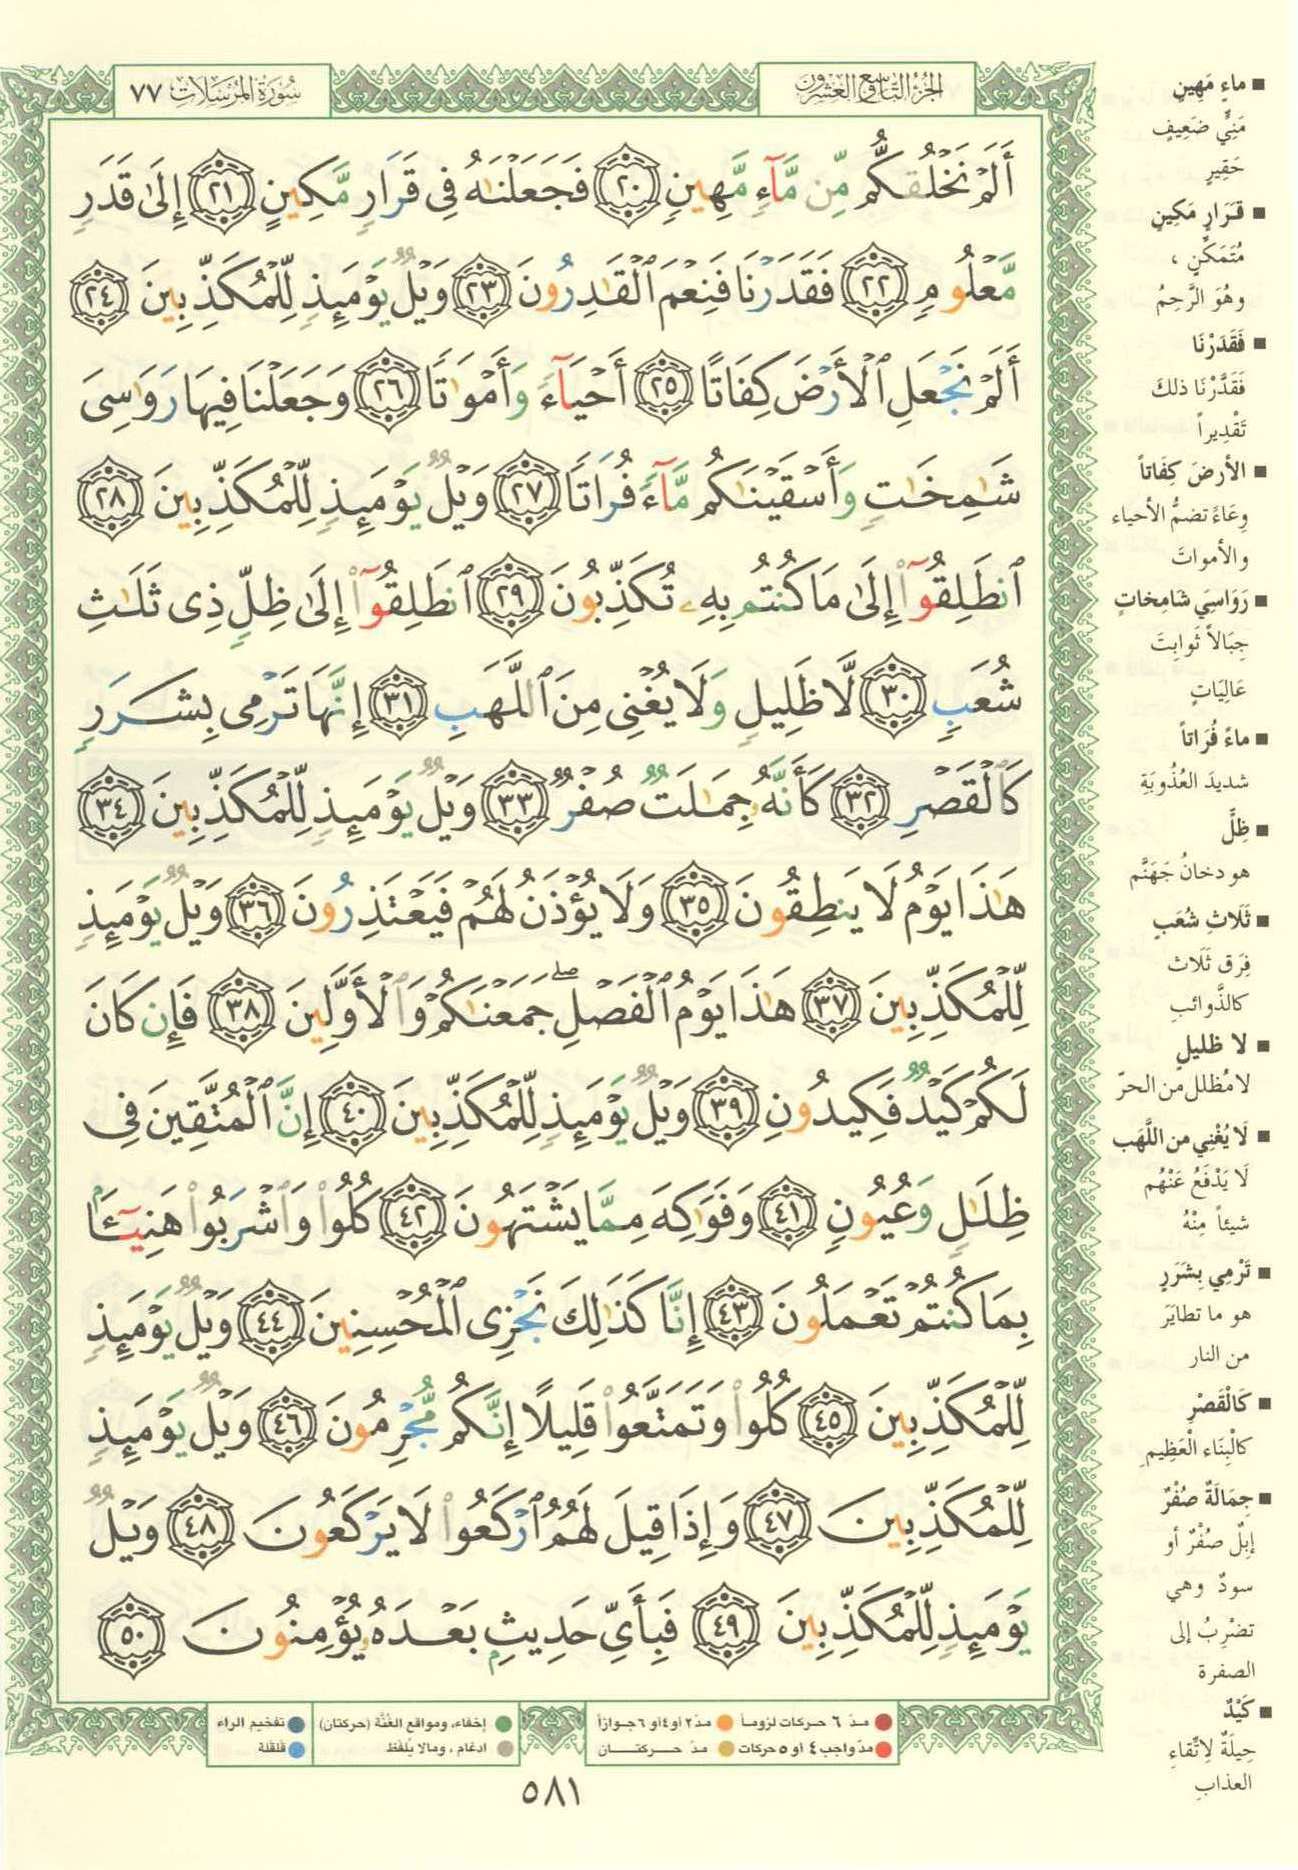 سُورَةُ المُرْسَلَات ٧٧
الجُزْءُ التَّاسِعُ وَالعِشْرُون
أَلَمْ نَخْلُقكُّم مِّن مَّآءٍ مَّهِينٍ ٢٠ فَجَعَلْنَٰهُ فِى قَرَارٍ مَّكِينٍ ٢١ إِلَىٰ قَدَرٍ
مَّعْلُومٍ ٢٢ فَقَدَرْنَا فَنِعْمَ ٱلْقَٰدِرُونَ ٢٣ وَيْلٌ يَوْمَئِذٍ لِّلْمُكَذِّبِينَ ٢٤
أَلَمْ نَجْعَلِ ٱلْأَرْضَ كِفَاتًا ٢٥ أَحْيَآءً وَأَمْوَٰتًا ٢٦ وَجَعَلْنَا فِيهَا رَوَٰسِىَ
شَٰمِخَٰتٍ وَأَسْقَيْنَٰكُم مَّآءً فُرَاتًا ٢٧ وَيْلٌ يَوْمَئِذٍ لِّلْمُكَذِّبِينَ ٢٨
ٱنطَلِقُوٓا۟ إِلَىٰ مَا كُنتُم بِهِۦ تُكَذِّبُونَ ٢٩ ٱنطَلِقُوٓا۟ إِلَىٰ ظِلٍّ ذِى ثَلَٰثِ
شُعَبٍ ٣٠ لَّا ظَلِيلٍ وَلَا يُغْنِى مِنَ ٱللَّهَبِ ٣١ إِنَّهَا تَرْمِى بِشَكرَرٍ
كَٱلْقَصْرِ ٣٢ كَأَنَّهُۥ جِمَٰلَتٌ صُفْرٌ ٣٣ وَيْلٌ يَوْمَئِذٍ لِّلْمُكَذِّبِينَ ٣٤
هَٰذَا يَوْمُ لَا يَنطِقُونَ ٣٥ وَلَا يُؤْذَنُ لَهُمْ فَيَعْتَذِرُونَ ٣٦ وَيْلٌ يَوْمَئِذٍ
لِّلْمُكَذِّبِينَ ٣٧ هَٰذَا يَوْمُ ٱلْفَصْلِ ۖ جَمَعْنَٰكُمْ وَٱلْأَوَّلِينَ ٣٨ فَإِن كَانَ
لَكُمْ كَيْدٌ فَكِيدُونِ ٣٩ وَيْلٌ يَوْمَئِذٍ لِّلْمُكَذِّبِينَ ٤٠ إِنَّ ٱلْمُتَّقِينَ فِى
ظِلَٰلٍ وَعُيُونٍ ٤١ وَفَوَٰكِهَ مِمَّا يَشْتَهُونَ ٤٢ كُلُوا۟ وَٱشْرَبُوا۟ هَنِيٓـًٔۢا
بِمَا كُنتُمْ تَعْمَلُونَ ٤٣ إِنَّا كَذَٰلِكَ نَجْزِى ٱلْمُحْسِنِينَ ٤٤ وَيْلٌ يَوْمَئِذٍ
لِّلْمُكَذِّبِينَ ٤٥ كُلُوا۟ وَتَمَتَّعُوا۟ قَلِيلًا إِنَّكُم مُّجْرِمُونَ ٤٦ وَيْلٌ يَوْمَئِذٍ
لِّلْمُكَذِّبِينَ ٤٧ وَإِذَا قِيلَ لَهُمُ ٱرْكَعُوا۟ لَا يَرْكَعُونَ ٤٨ وَيْلٌ
يَوْمَئِذٍ لِّلْمُكَذِّبِينَ ٤٩ فَبِأَىِّ حَدِيثٍۭ بَعْدَهُۥ يُؤْمِنُونَ ٥٠
ماءٍ مَهِينٍ
مَنِيٍّ ضَعِيفٍ
حَقِيرٍ
قَرَارٍ مَكِينٍ
مُتَمَكِّنٍ ،
وهُوَ الرَّحِمُ
فَقَدَرْنَا
فَقَدَّرْنَا ذلكَ
تَقْدِيراً
الأرضَ كِفَاتاً
وِعَاءً تضمُّ الأحياء
والأمواتَ
رَوَاسِيَ شَامِخاتٍ
جِبَالاً ثَوابِتَ
عَالِيَاتٍ
ماءً فُرَاتاً
شديدَ العُذُوبَةِ
ظِلٍّ
هو دخانُ جَهَنَّم
ثَلَاثِ شُعَبٍ
فِرَق ثَلَاث
كالذَّوائبِ
لا ظليلٍ
لا مُظلل من الحرّ
لَا يُغْنِي من اللَّهَب
لَا يَدْفَعُ عَنْهُم
شيئاً مِنْهُ
تَرْمِي بِشَرَرٍ
هو ما تطايَر
من النار
كَالْقَصْرِ
كالْبِنَاء الْعَظِيمِ
جِمَالَةٌ صُفْرٌ
إبِلٌ صُفْرٌ أو
سودٌ وهي
تضْرِبُ إلى
الصفرة
كَيْدٌ
حِيلَةٌ لاِتِّقاءِ
العذابِ
مدّ ٦ حركات لزوماً مدّ ٢ أو ٤ أو ٦ جوازاً
مدّ واجب ٤ أو ٥ حركات مدّ حركتان
إخفاء، ومواقع الغُنَّة (حركتان) تفخيم الراء
ادغام ، ومالا يُلفَظ قلقلة
٥٨١